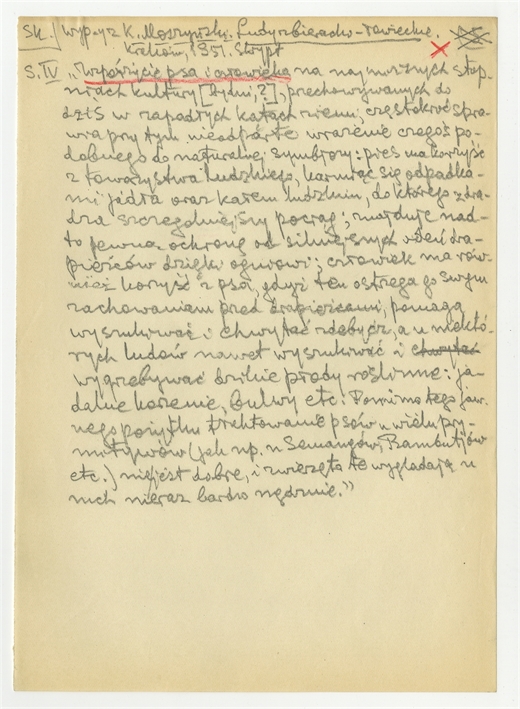 SK. Wypisy z K. Moszyński. Ludy zbieracko-łowieckie.
Kraków, 1951. Skrypt
S. IV „Współżycie psa i człowieka na najniższych stop-
niach kultury [ludni?], przechowywanych do
dziś w zapadłych kątach ziemi, częstokroć spra-
wia przy tym nieodparte wrażenie czegoś po-
dobnego do naturalnej symbiozy: pies ma korzyść
z towarzystwa ludzkiego, karmiąc się odpadka-
mi jadła oraz kałem ludzkim, do którego zdra-
dza szczególniejszy pociąg; znajduje nad-
to pewną ochronę od silniejszych odeń dra-
pieżców dzięki ogniowi; człowiek ma rów-
nież korzyść z psa, gdyż ten ostrzega go swym
zachowaniem przed drapieżcami, pomaga
wyszukiwać i chwytać zdobycz, a u niektó-
rych ludów nawet wyszukiwać i chwytać
wygrzebywać dzikie płody roślinne: ja-
dalne korzenie, bulwy etc. Pomimo tego jaw-
nego pożytku traktowanie psów u wielu pry-
mitywów (jak np. u Semangów, Bambutjów
etc.) nie jest dobre, i zwierzęta te wyglądają u
nich nieraz bardzo nędznie.”